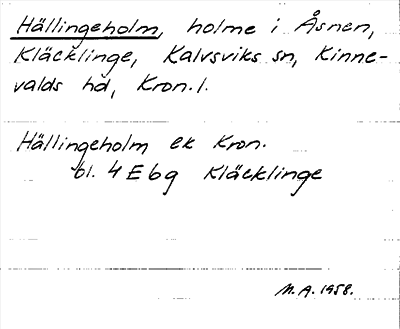 Hällingeholm, holme i Åsnen,
Kläcklinge, Kalvsviks sn, Kinne-
valds hd, Kron. l.
Hällingeholm ek Kron.
bl. 4 E 6 g Kläcklinge
M. A. 1958.